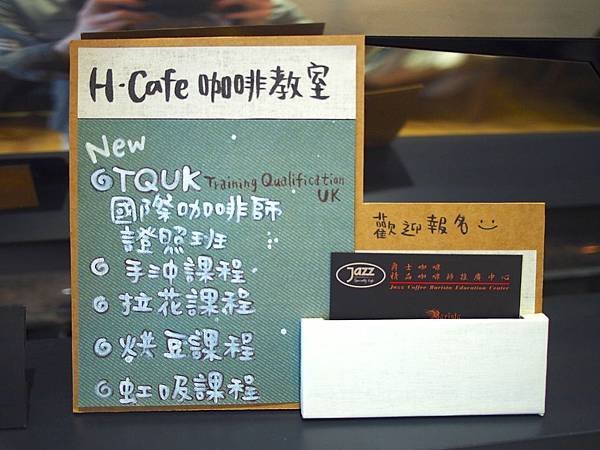 H·Cafe 咖啡教室
New
TQUK Training Qualification UK
國際咖啡師
證照班
手沖課程
拉花課程
烘豆課程
虹吸課程
歡迎報名
Jazz
Specialty Cafe
爵士咖啡
精品咖啡師推廣中心
Jazz Coffee Barista Education Center
Barista